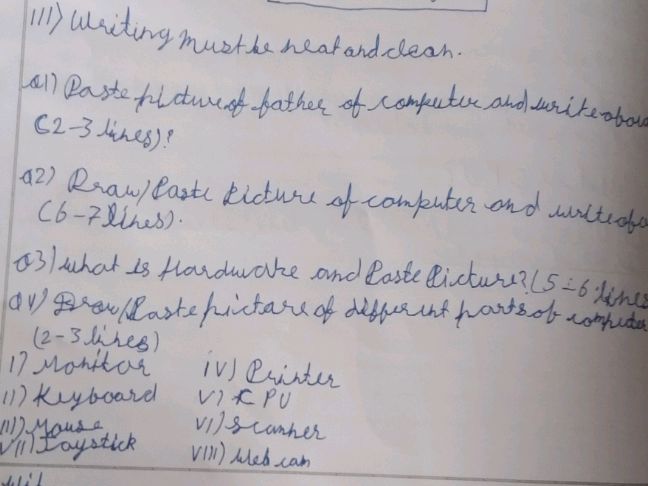 III) Writing must be neat and clean.
Q1) Paste picture of father of computer and write about
(2-3 lines)?
Q2) Draw/Paste Picture of computer and write abo
(6-7 lines).
Q3) what is Hardware and Paste Picture? (5-6 lines
QV) Draw/Paste picture of different parts of computer
(2-3 lines)
I) Monitor iv) Printer
II) Keyboard V) CPU
III) Mouse VI) Scanner
VII) Joystick VIII) Web cam